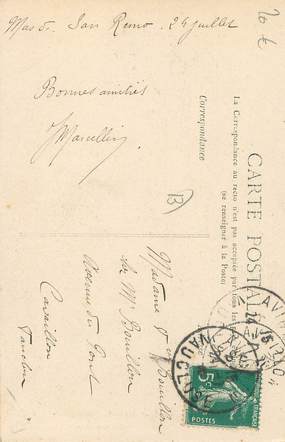 Mas de San Remo 24 juillet
20 €
Bonnes amitiés
J Marcellin
13
CARTE POSTALE
La Correspondance au recto n'est pas acceptée par tous les
(se renseigner à la Poste)
Correspondance
Madame & Mr Bouillon
Avenue du Pont
Cavaillon
Vaucluse
AVIGNON
VAUCLUSE
5c